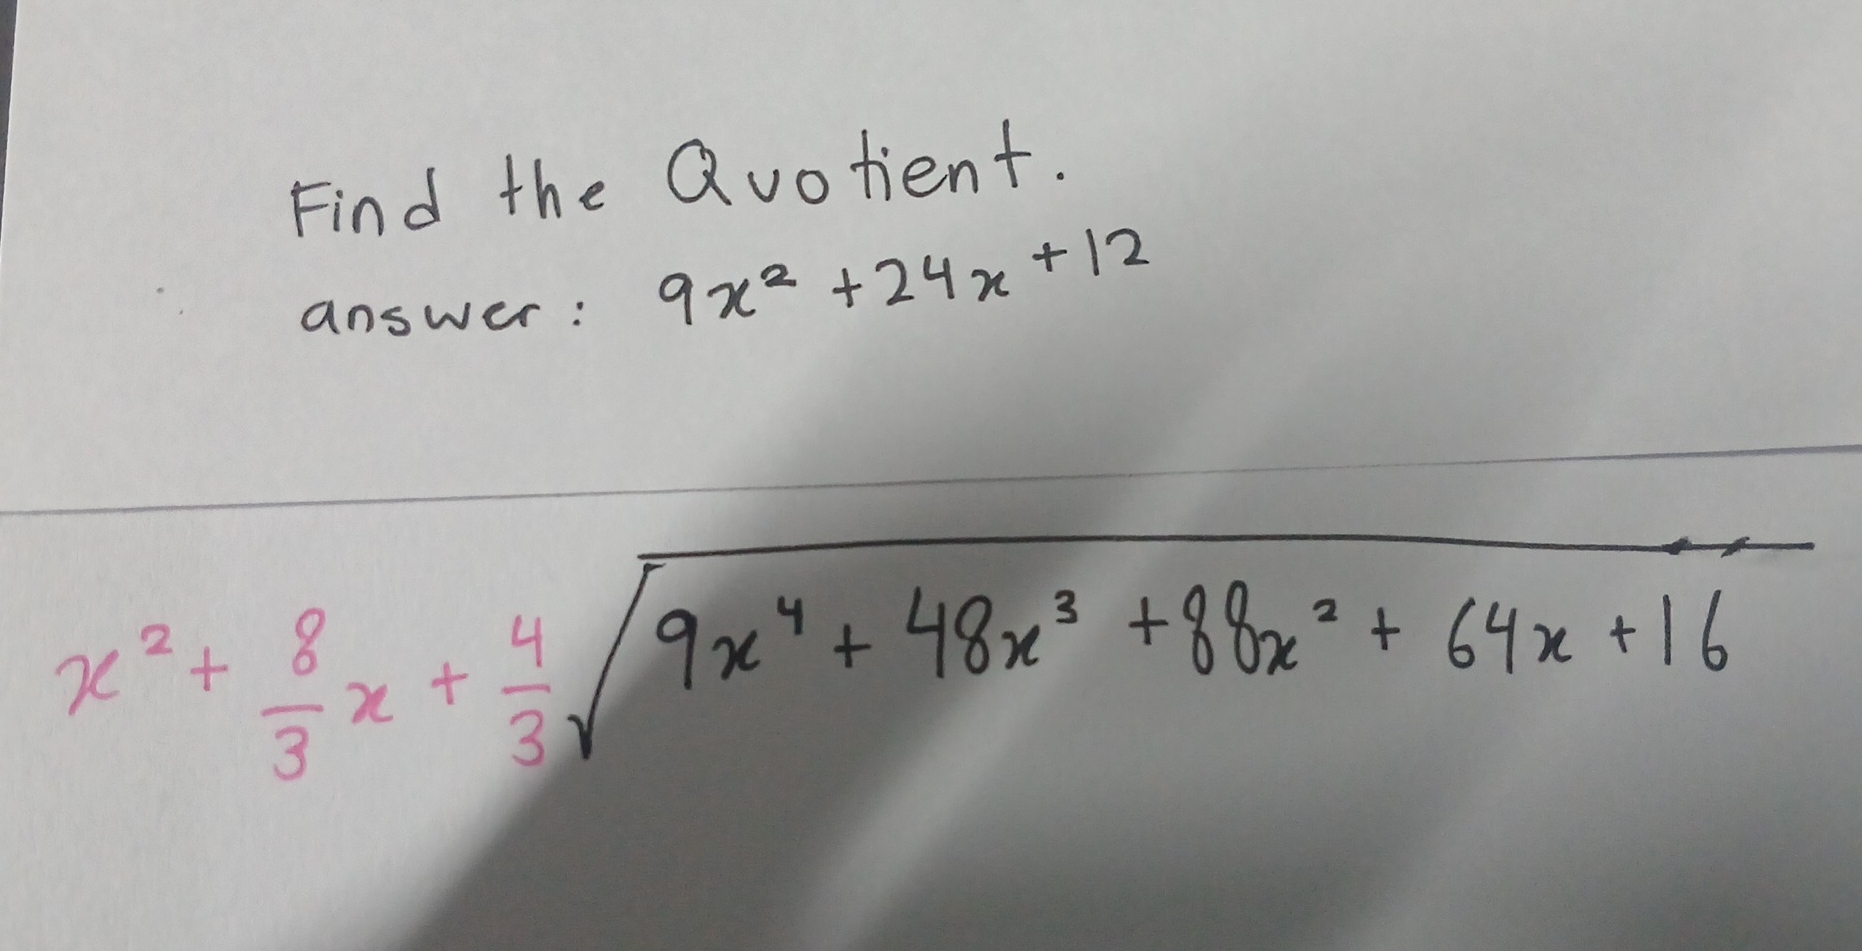 Find the Quotient.
answer: 9x² + 24x + 12
x² + 8/3 x + 4/3 √ 9x⁴ + 48x³ + 88x² + 64x + 16